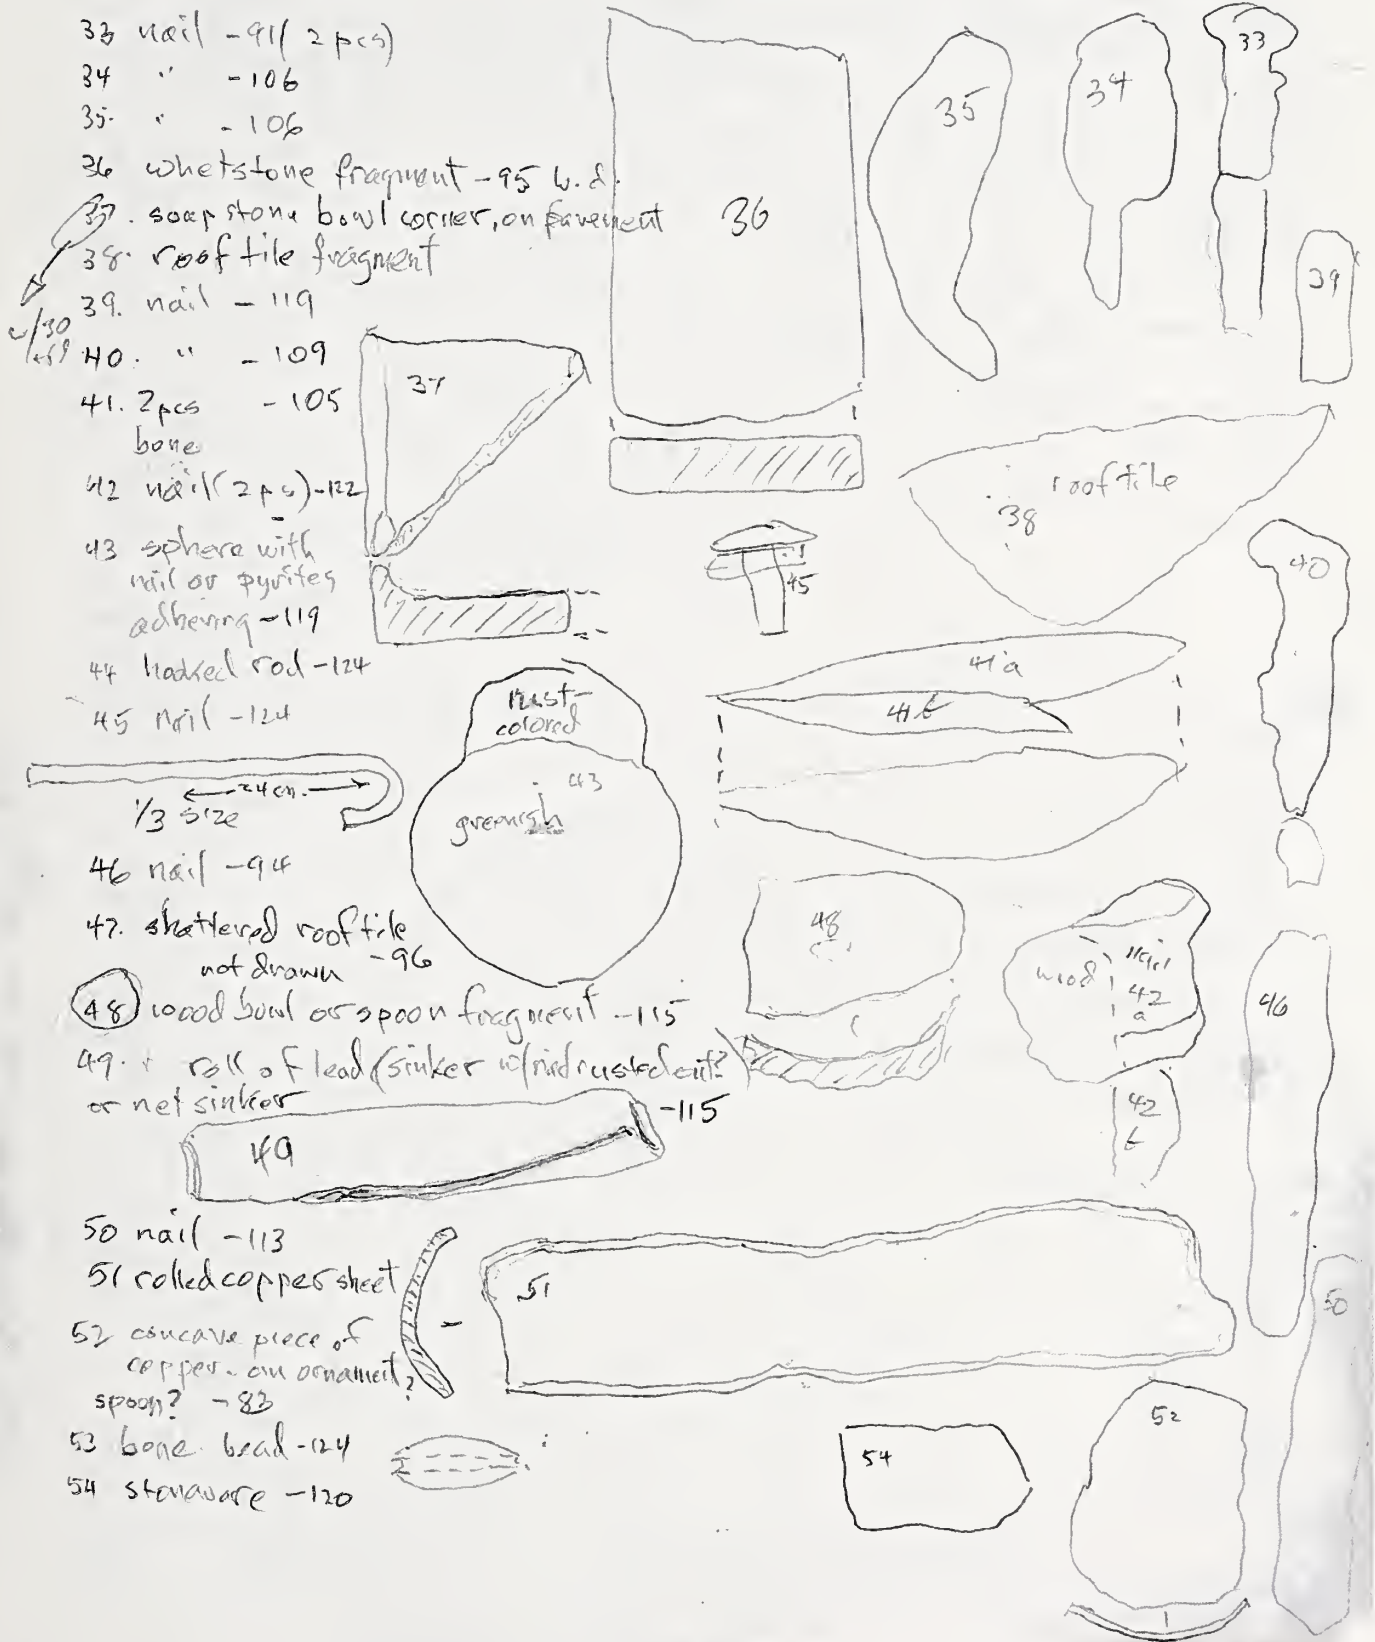 33 nail -91(2 pcs)
34 " -106
35. " -106
36 whetstone fragment -95 w.d.
37. soapstone bowl corner, on pavement
38. roof tile fragment
39. nail - 119
w/30
40. " - 109
41. 2pcs - 105
bone
42 nail (2 pcs) -122
43 sphere with
nail or pyrites
adhering -119
44 hooked rod -124
45 nail -124
24 cm.
1/3 size
46 nail -94
47. shattered roof tile
not drawn -96
48 wood bowl or spoon fragment -115
49. roll of lead (sinker w/ rod rusted out?)
or net sinker -115
50 nail -113
51 rolled copper sheet
52 concave piece of
copper - an ornament?
spoon? -83
53 bone bead -124
54 stoneware -120
36
35
34
33
39
37
roof tile
38
40
45
41a
41b
rust-
colored
43
greenish
48
wood
nail
42
a
42
b
46
49
51
50
52
54